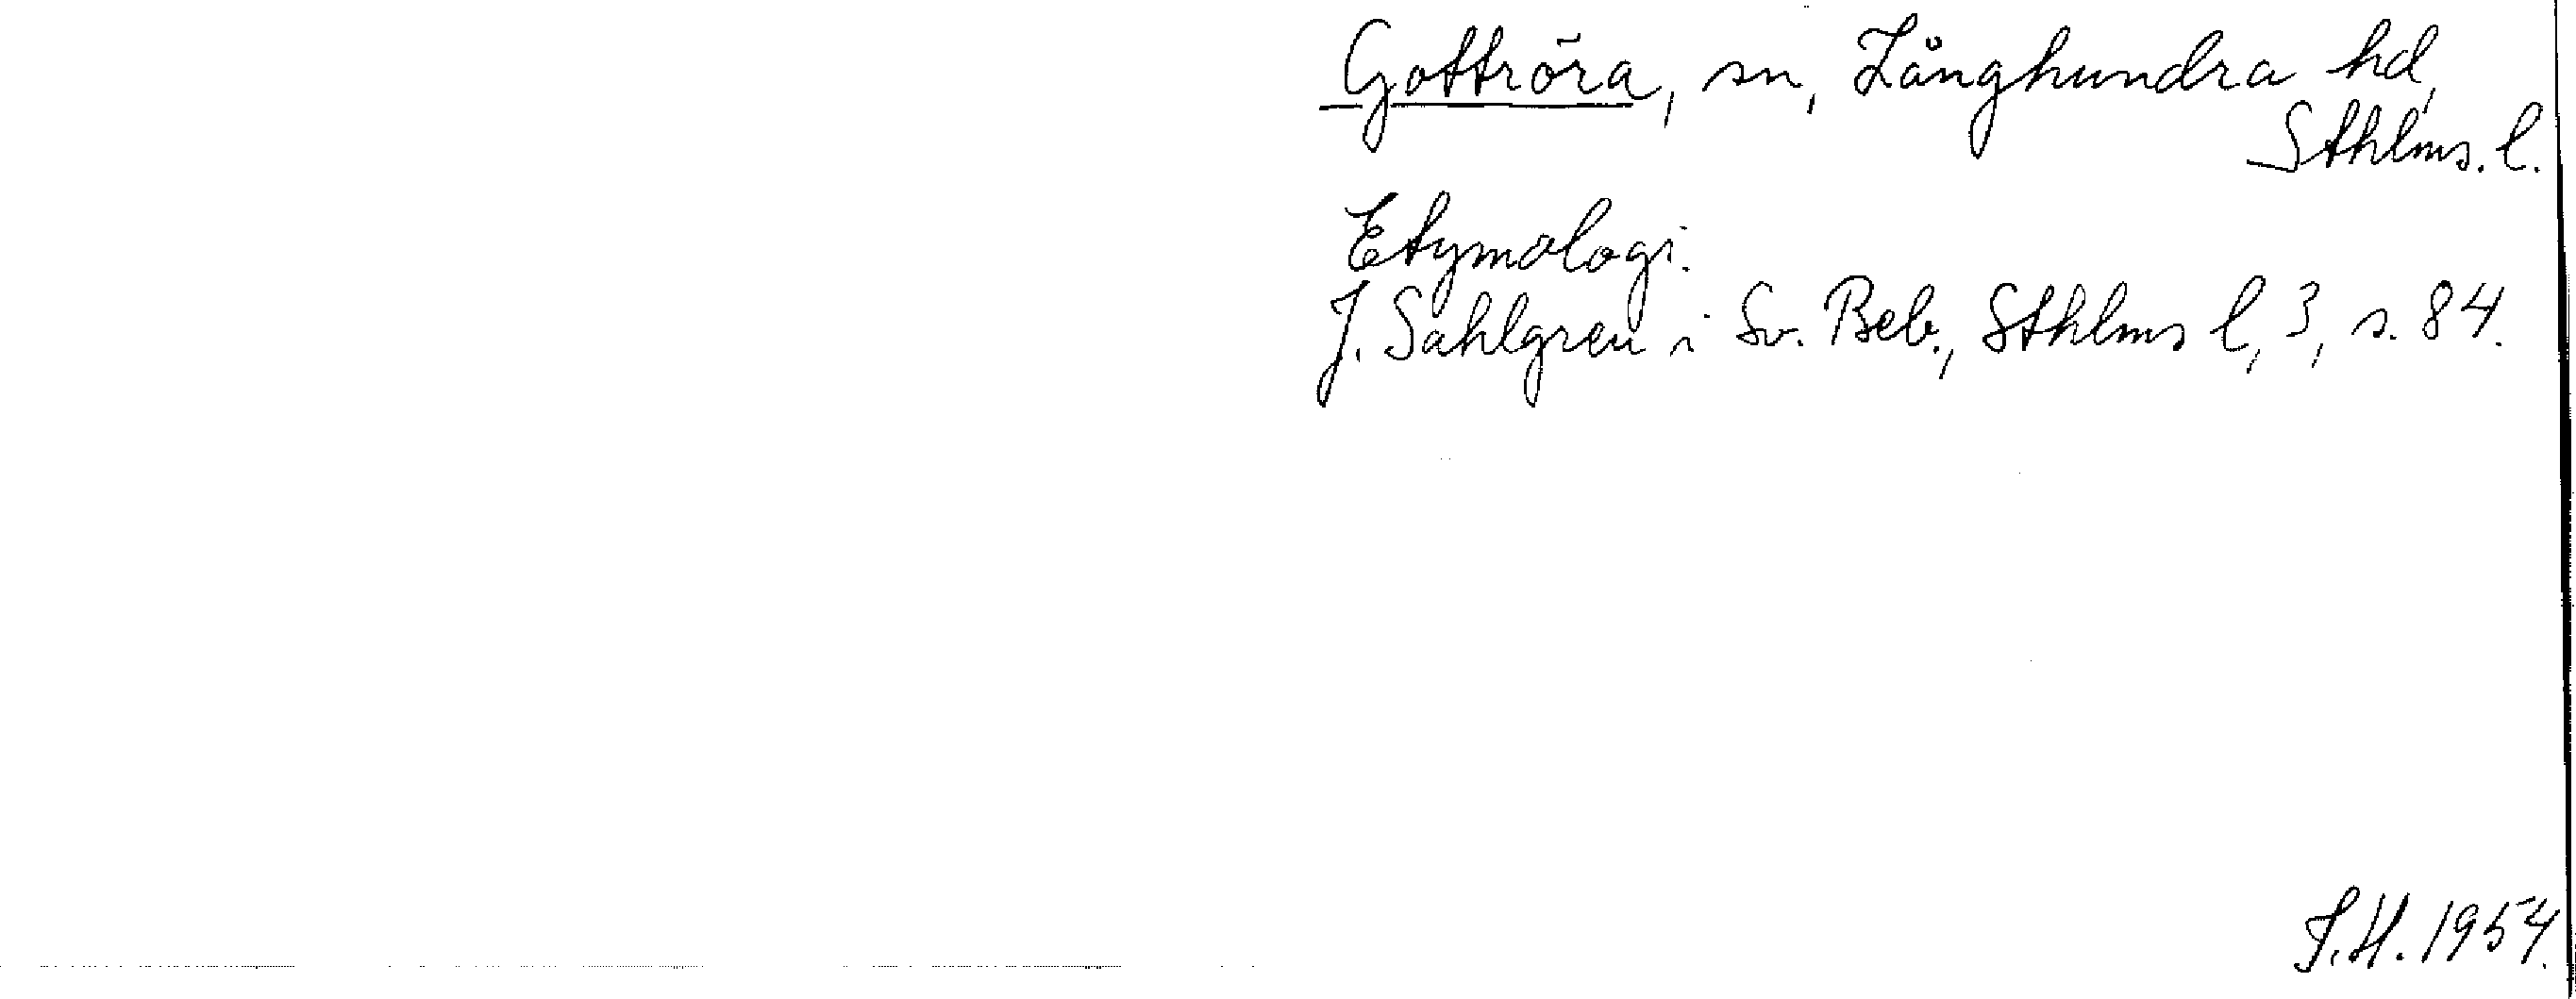 Gottröra, sn, Långhundra hd,
Sthlms. l.
Etymologi.
J. Sahlgren i Sv. Beb., Sthlms l, 3, s. 84.
S.H. 1954.